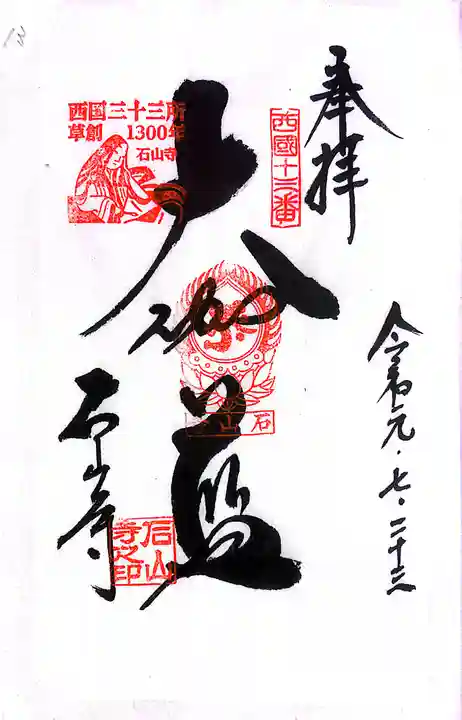 奉拝
西國十三番
令和元・七・二十三
大伽藍
西国三十三所
草創 1300年
石山寺
石山
石山寺
石山寺之印